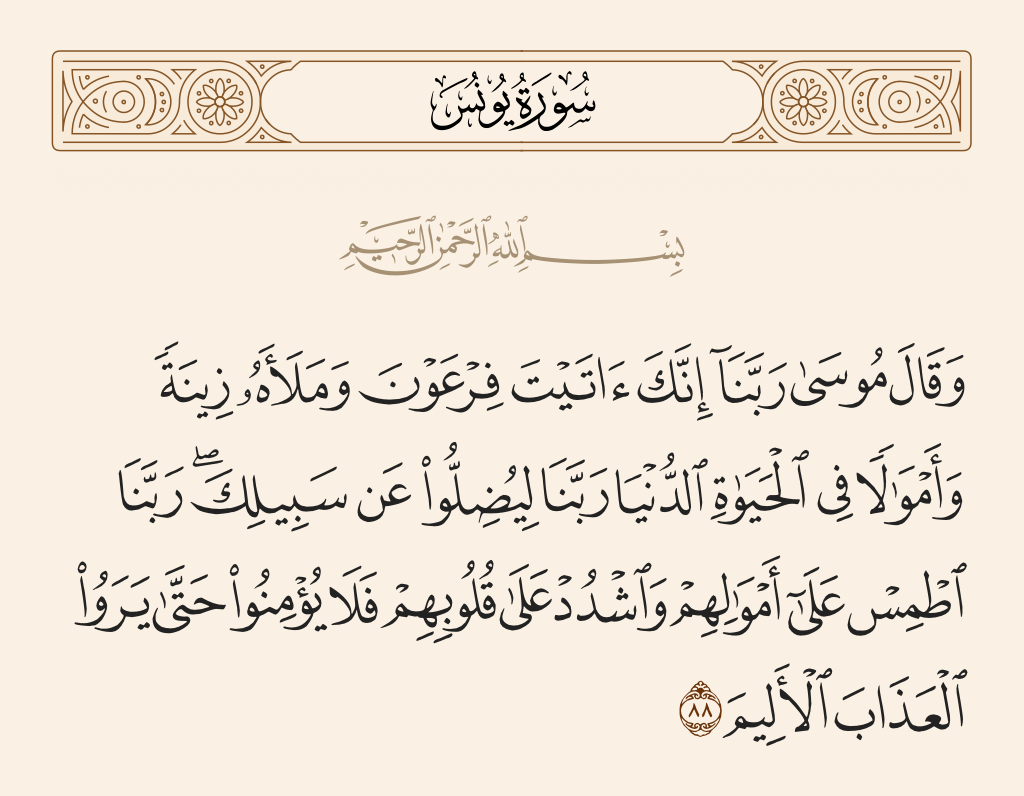 سُورَةُ يُونُسَ
بِسْمِ ٱللَّهِ ٱلرَّحْمَٰنِ ٱلرَّحِيمِ
وَقَالَ مُوسَىٰ رَبَّنَآ إِنَّكَ ءَاتَيْتَ فِرْعَوْنَ وَمَلَأَهُۥ زِينَةً
وَأَمْوَٰلًا فِى ٱلْحَيَوٰةِ ٱلدُّنْيَا رَبَّنَا لِيُضِلُّوا۟ عَن سَبِيلِكَ ۖ رَبَّنَا
ٱطْمِسْ عَلَىٰٓ أَمْوَٰلِهِمْ وَٱشْدُدْ عَلَىٰ قُلُوبِهِمْ فَلَا يُؤْمِنُوا۟ حَتَّىٰ يَرَوُا۟
ٱلْعَذَابَ ٱلْأَلِيمَ ٨٨